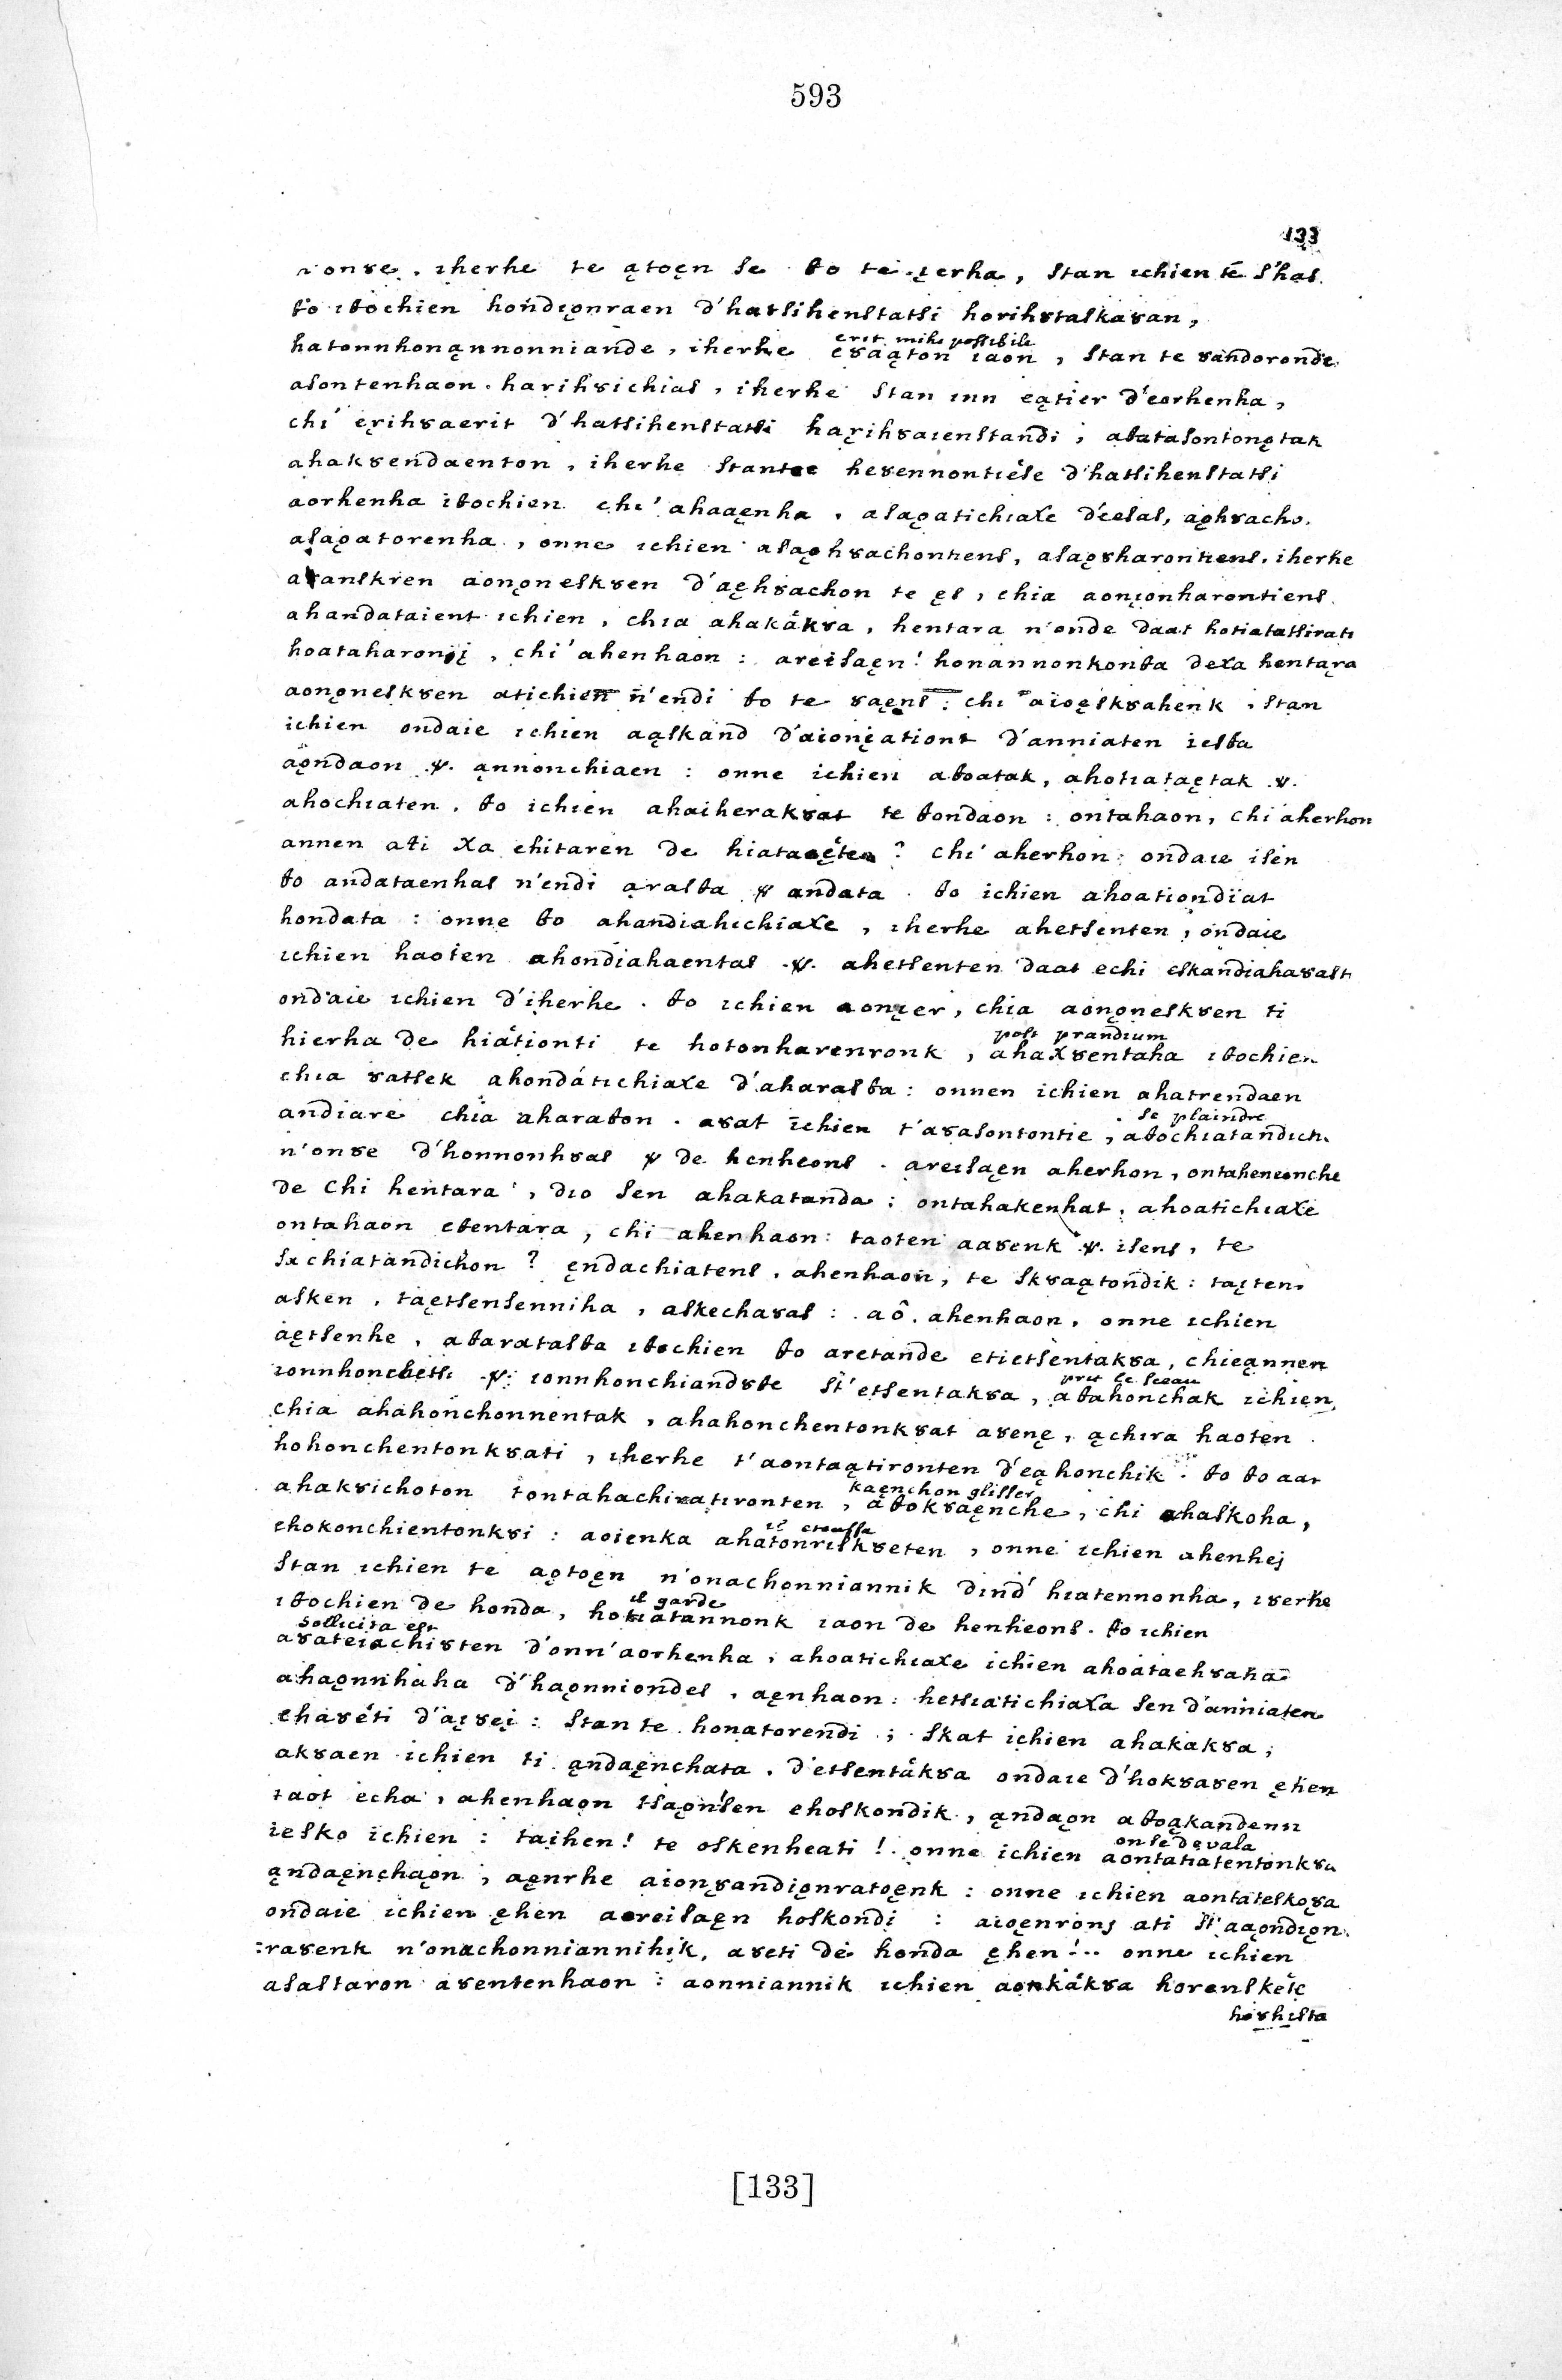 593
133
ionȣe, iherhe te ątoęn se ꝋo te įerha, stan ichien te s'has
ꝋo iꝋochien hondįonraen d'hatsihenstatsi horihȣtaskaȣan,
erit mihi possibile
hatonnhonąnnonniande, iherhe eȣaąton iaon, stan te ȣandoronde
asontenhaon. harihȣichias, iherhe stan inn eątier d'eorhenha,
chi' ęrihȣaerit d'hatsihenstatsi haꞧihȣaienstandi; aꝋatasontonętak
ahakȣendaenton, iherhe stante heȣennontiése d'hatsihenstatsi
aorhenha iꝋochien chi' ahaaęnha, asaǫatichiaxe d'eesas, aǫhȣacho.
asaǫatorenha, onne ichien asaǫhȣachontiens, asaǫȣharontiens, iherhe
aȣanskren aonǫneskȣen d'aęhȣachon te ęs, chia aonįonharontiens
ahandataient ichien, chia ahakákȣa, hentara n'onde daat hotiatatsirati
hoataharonįį, chi' ahenhaon: areisaęn! honannonkonꝋa dexa hentąra
aonǫneskȣen atichien n'endi ꝋo te ȣaęns: chi aioęskȣahenk, stan
ichien ondaie ichien aąskand d'aionįationt d'anniaten iesꝋa
aǫndaon ȣ. ąnnonchiaen: onne ichien aꝋoatak, ahotiataętak ȣ.
ahochiaten, ꝋo ichien ahaiherakȣat te ꝋondaon: ontahaon, chi aherhon
annen ati xa chitaren de hiataęten? chi' aherhon: ondaie isen
ꝋo andataenhas n'endi ąrasꝋa ȣ andata. ꝋo ichien ahoationdiat
hondata: onne ꝋo ahandiahichiaxe, iherhe ahetsenten, ondaie
ichien haoten ahondiahaentas ȣ. ahetsenten daat echi eskandiahaȣast
ondaie ichien d'iherhe. ꝋo ichien aonįer, chia aonǫneskȣen ti
post prandium
hierha de hiátionti te hotonharenronk, ahaxȣentaha iꝋochien
chia ȣatsek ahondátichiaxe d'aharasꝋa: onnen ichien ahatrendaen
se plaindre
andiare chia aharaꝋon. aȣat ichien t'aȣasontontie, aꝋochiatandich
n'onȣe d'honnonhȣas ȣ de henheons. areisaęn aherhon, ontaheneonche
de chi hentara', dio sen ahakatanda: ontahakenhat, ahoatichiaxe
ontahaon eꝋentara, chi ahenhaon: taoten aaȣenk ȣ. isens, te
sachiatandichon? ęndachiatens, ahenhaon, te skȣaątondik: taįten
asken, taętsensenniha, askechaȣas: aô. ahenhaon, onne ichien
aętsenhe, aꝋaratasꝋa iꝋochien ꝋo aretande etietsentakȣa, chieąnnen
prit le sceau
ionnhonchetsi ȣ. ionnhonchiandȣte st'etsentakȣa, aꝋahonchak ichien,
chia ahahonchonnentak, ahahonchentonkȣat aȣenę, ąchira haoten
hohonchentonkȣati, iherhe t'aontaątironten d'eąhonchik. ꝋo ꝋo aar
kaęnchon glisser
ahakȣichoton tontahachiratironten, aꝋokȣaęnche, chi ahaskoha,
il etouffa
ehokonchientonkȣi: aoienka ahatonriskȣeten, onne ichien ahenhej
stan ichien te aǫtoęn n'onachonniannik dind' hiatennonha, iȣerhe
il garde
iꝋochien de honda, hotiatannonk iaon de henheons. ꝋo ichien
sollicita est
aȣateiachiȣten d'onn'aorhenha, ahoatichiaxe ichien ahoataehȣaha
ahaǫnnhaha d'haǫnniondes, aęnhaon: hetsiatichiaxa sen d'anniaten
ehaȣéti d'aįȣeį: stan te honatorendi; skat ichien ahakakȣa;
akȣaen ichien ti ąndaęnchata, d'etsentákȣa ondaie d'hokȣaȣen ęhen
taot echa, ahenhaon tsaǫnsen ehoskondik, ąndaǫn aꝋoąkandenn
on se devala
iesko ichien: taihen! te oskenheati! onne ichien aontatiatentonkȣa
ąndaęnchaǫn, aęnrhe aionȣandiǫnratoęnk: onne ichien aontateskoȣa
ondaie ichien ęhen aoreisaęn hoskondi: aioęnrons ati st'aaǫndiǫn
:raȣenk n'onachonniannihik, aȣeti de honda ęhen!.. onne ichien
asastaron aȣentenhaon: aonniannik ichien aonkákȣa horenskéte
hoȣhista
[133]